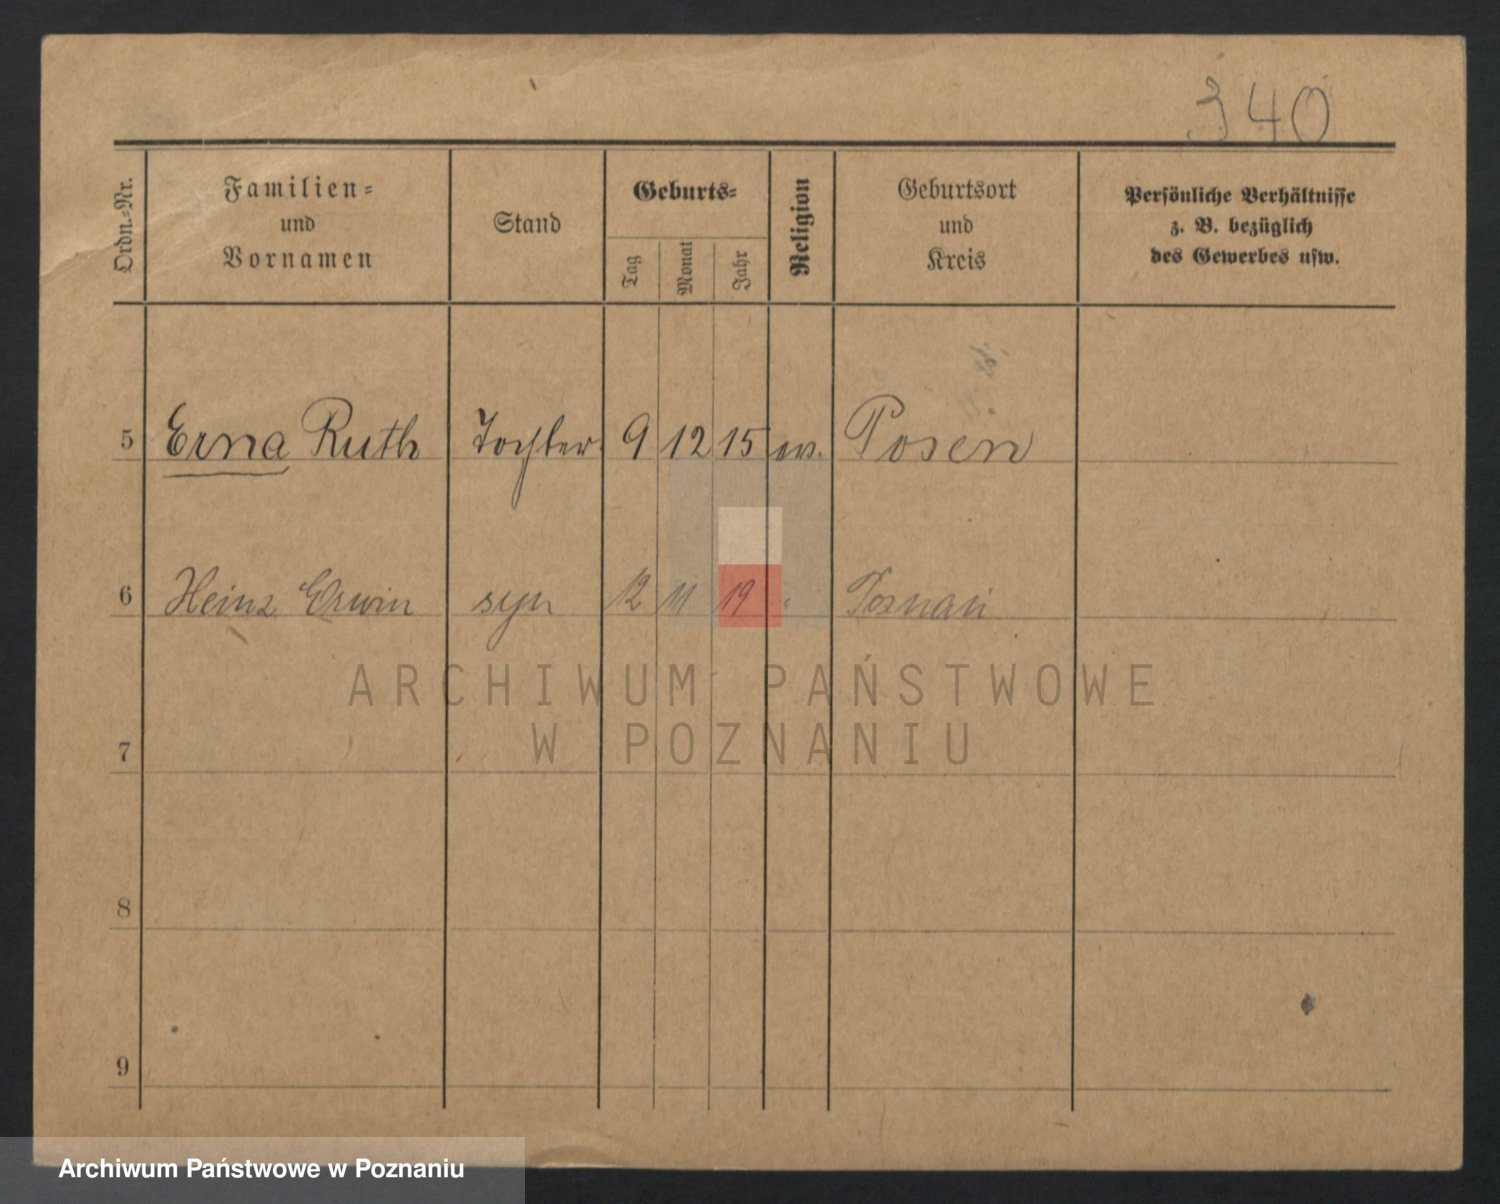 340
Ordn.-Nr.
Familien-
und
Vornamen
Stand
Geburts-
Tag
Monat
Jahr
Religion
Geburtsort
und
Kreis
Persönliche Verhältnisse
z. B. bezüglich
des Gewerbes usw.
5 Erna Ruth Tochter 9 12 15 ev. Posen
6 Heinz Erwin syn 12 11 19 " Poznań
ARCHIWUM PAŃSTWOWE
W POZNANIU
7
8
9
Archiwum Państwowe w Poznaniu